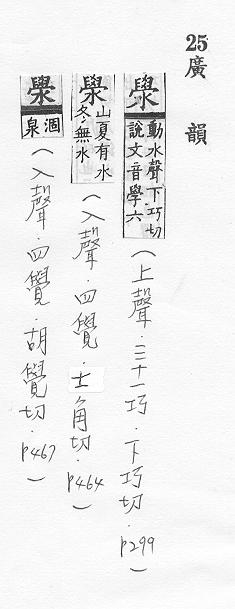 25廣韻
澩
動水聲下巧切
說文音學六
（上聲.三十一巧.下巧切.p299）
澩
山夏有水
冬無水
（入聲.四覺.士角切.p464）
澩
涸
泉
（入聲.四覺.胡覺切.p467）